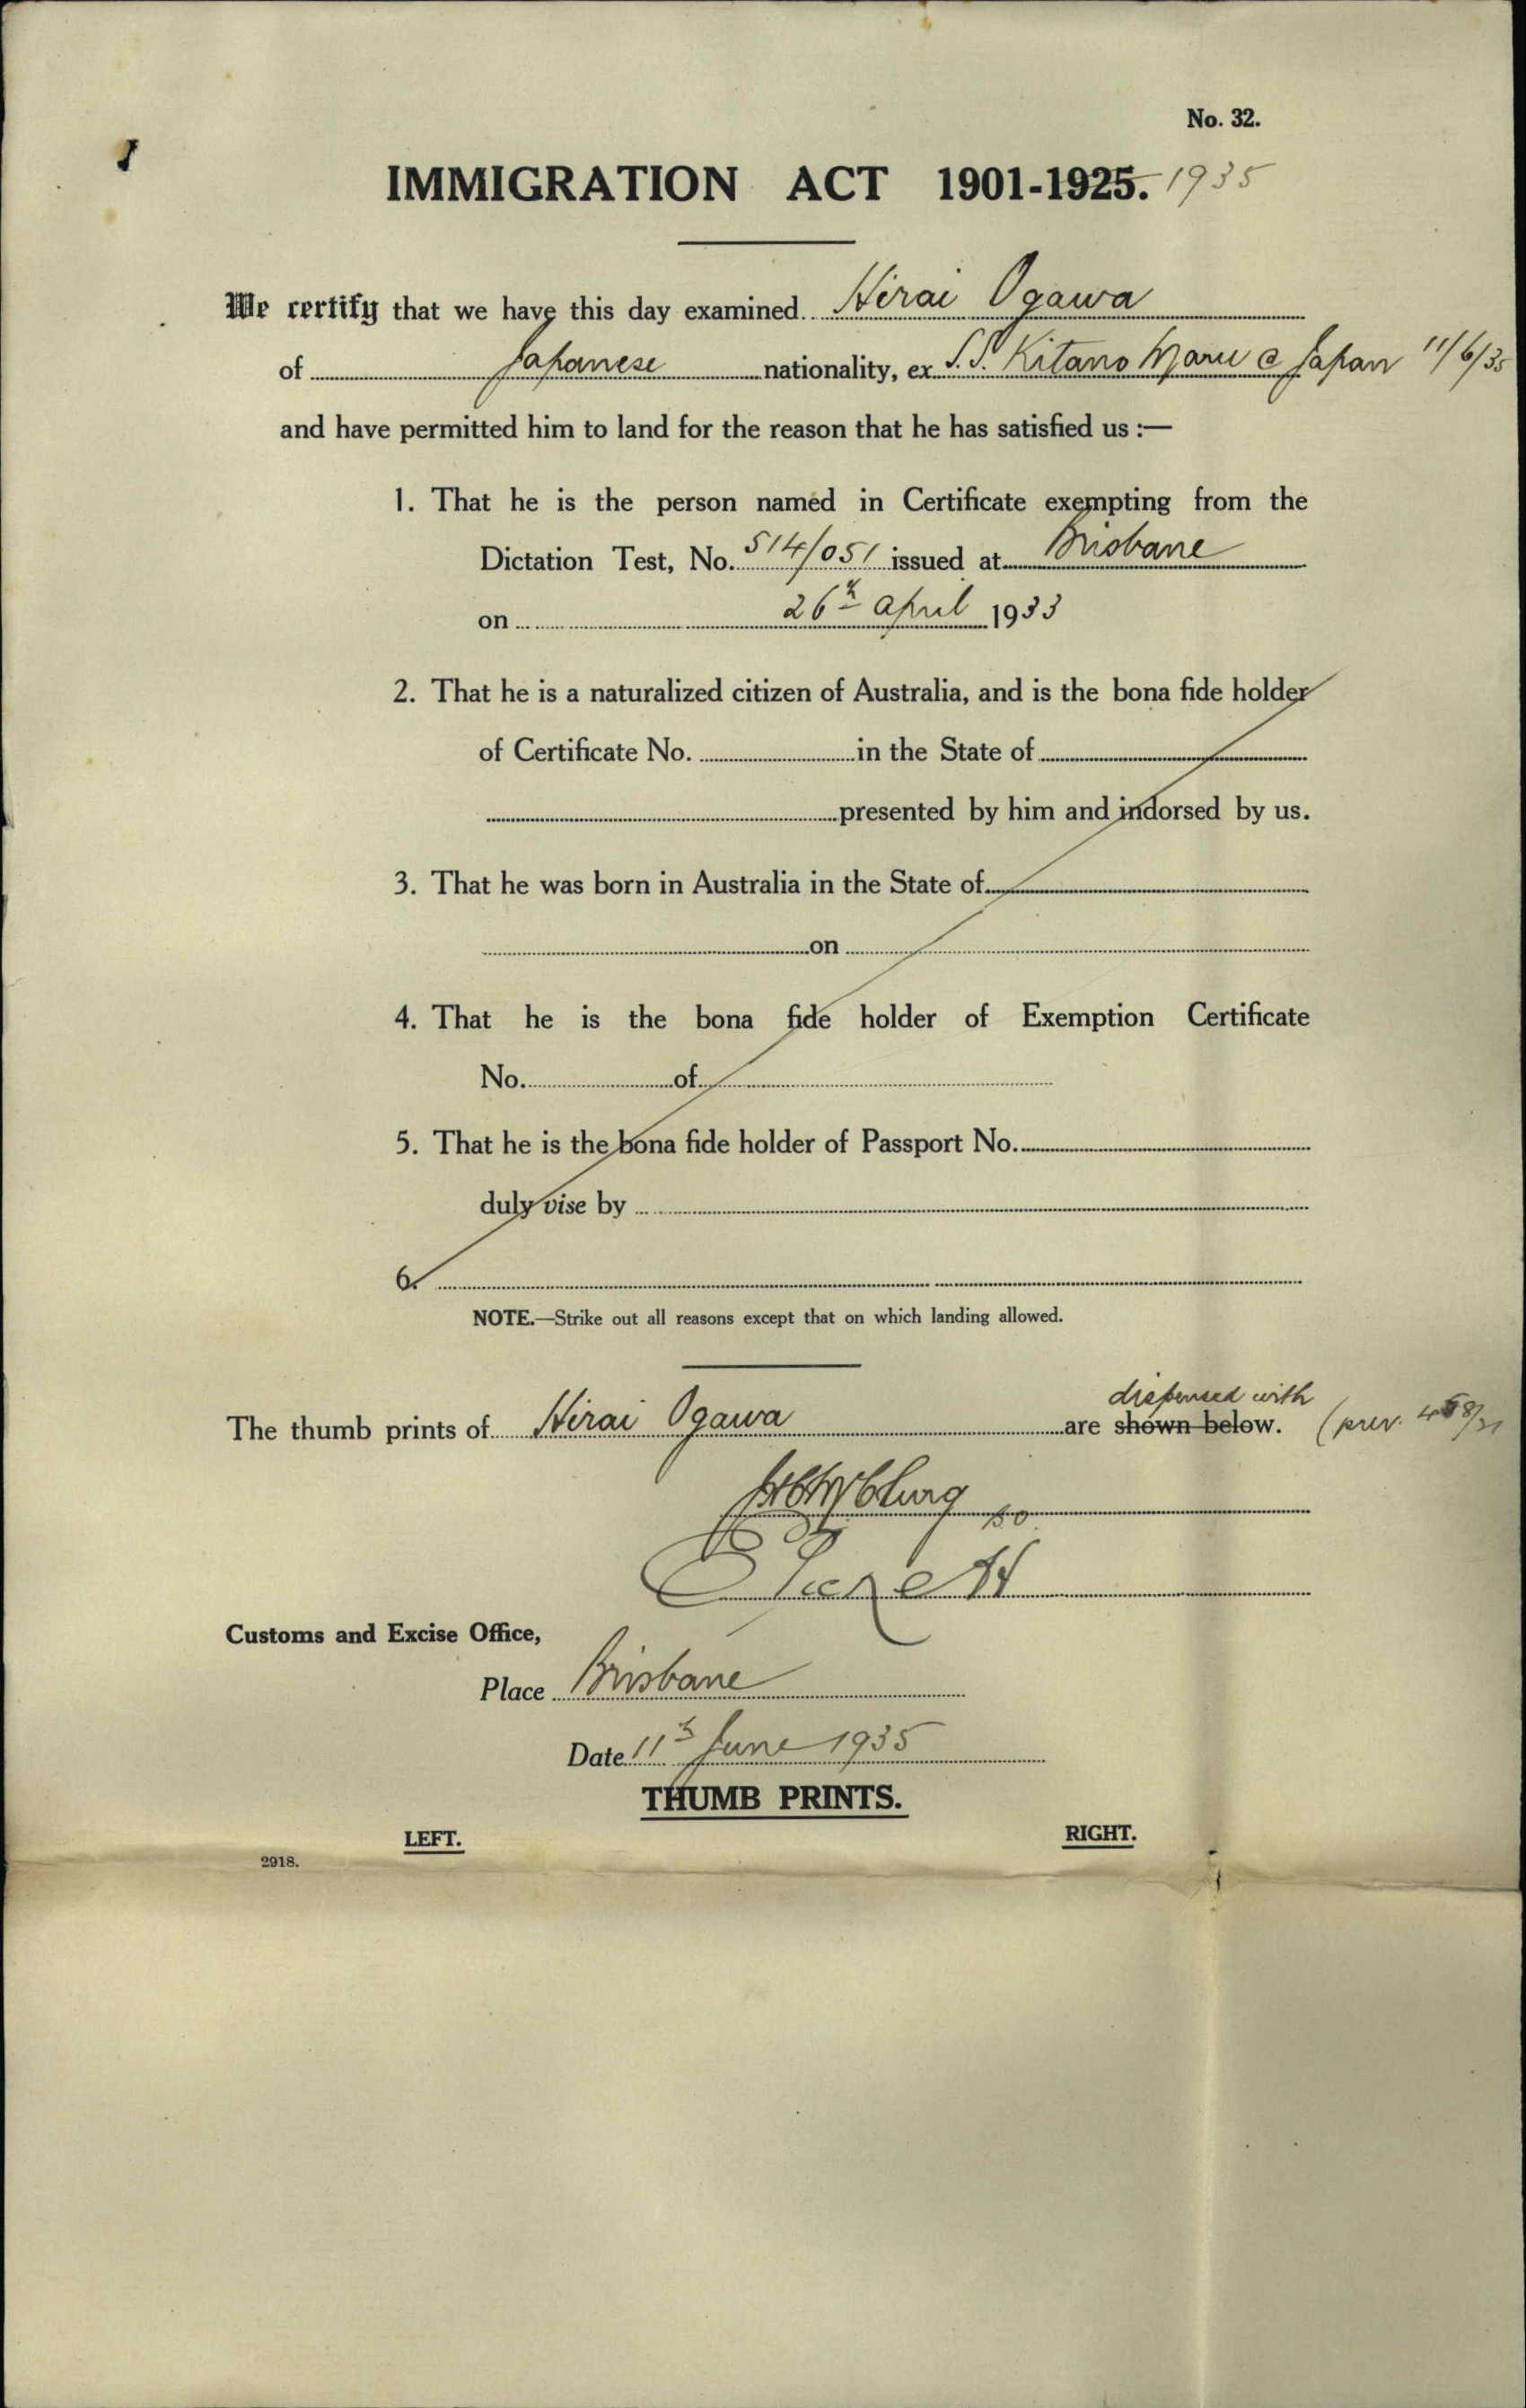 No. 32.
IMMIGRATION ACT 1901-1925. 1935
We certify that we have this day examined Hirai Ogawa
of Japanese nationality, ex S.S. Kitano Maru @ Japan 11/6/35
and have permitted him to land for the reason that he has satisfied us :—
1. That he is the person named in Certificate exempting from the
Dictation Test, No. 514/051 issued at Brisbane
on 26th April 1933
2. That he is a naturalized citizen of Australia, and is the bona fide holder
of Certificate No. in the State of
presented by him and indorsed by us.
3. That he was born in Australia in the State of
on
4. That he is the bona fide holder of Exemption Certificate
No. of
5. That he is the bona fide holder of Passport No.
duly vise by
6.
NOTE.—Strike out all reasons except that on which landing allowed.
dispensed with
The thumb prints of Hirai Ogawa are shown below. (prev.
Customs and Excise Office,
Place Brisbane
Date 11th June 1935
THUMB PRINTS.
LEFT. RIGHT.
2918.